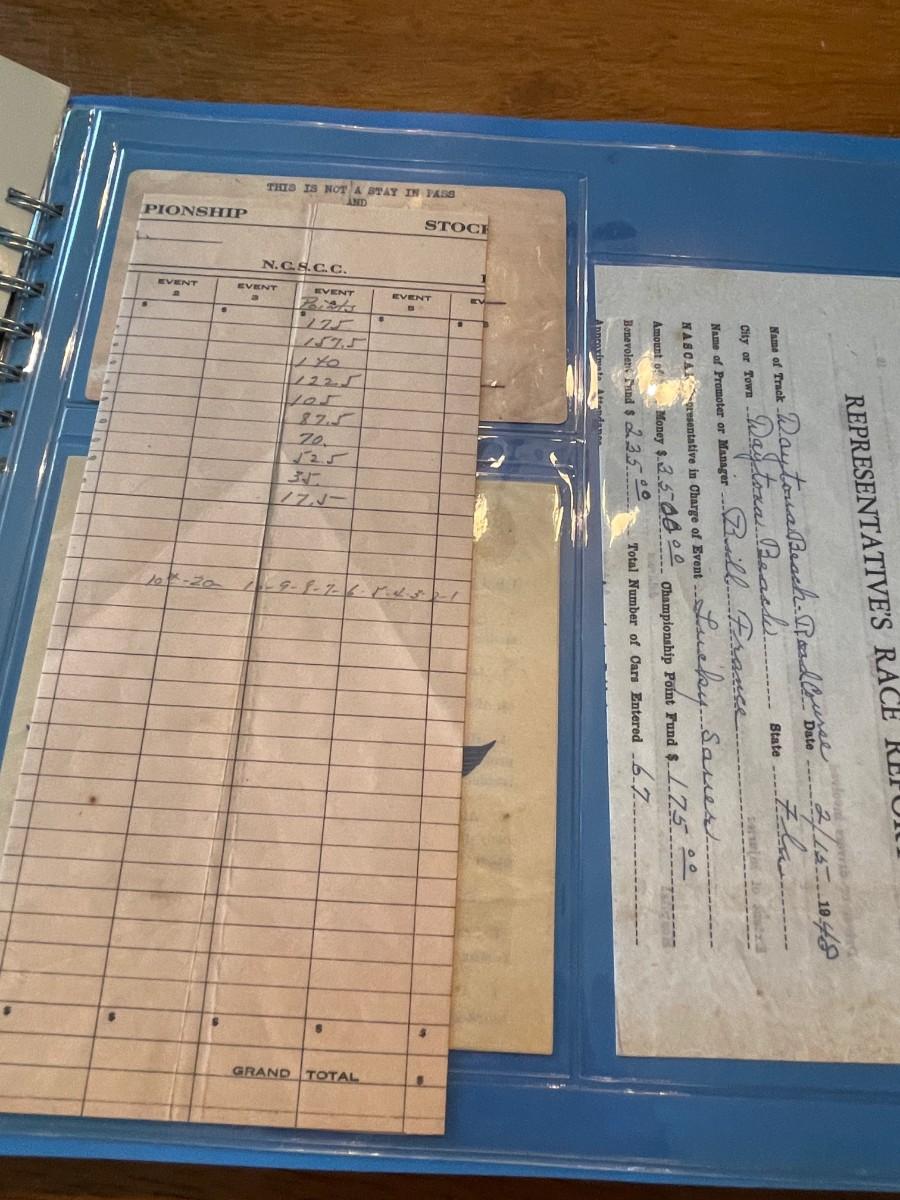 THIS IS NOT A STAY IN PASS
AND
PIONSHIP STOCK
N.C.S.C.C.
EVENT 2 EVENT 3 EVENT EVENT 5 EV
Points
$ $ $ $ $
175
157.5
140
122.5
105
87.5
70.
52.5
35
17.5
10th-20 10-9-8-7-6-5-4-3-2-1
$ $ $ $ $
GRAND TOTAL $
REPRESENTATIVE'S RACE REPORT
Name of Track Daytona Beach-Road Course Date 2/15 1948
City or Town Daytona Beach State Fla
Name of Promoter or Manager Bill France
NASCAR Representative in Charge of Event Lucky Sauer
Amount of Money $ 3500.00 Championship Point Fund $ 175.00
Benevolent Fund $ 235.00 Total Number of Cars Entered 67
Approximate Attendance